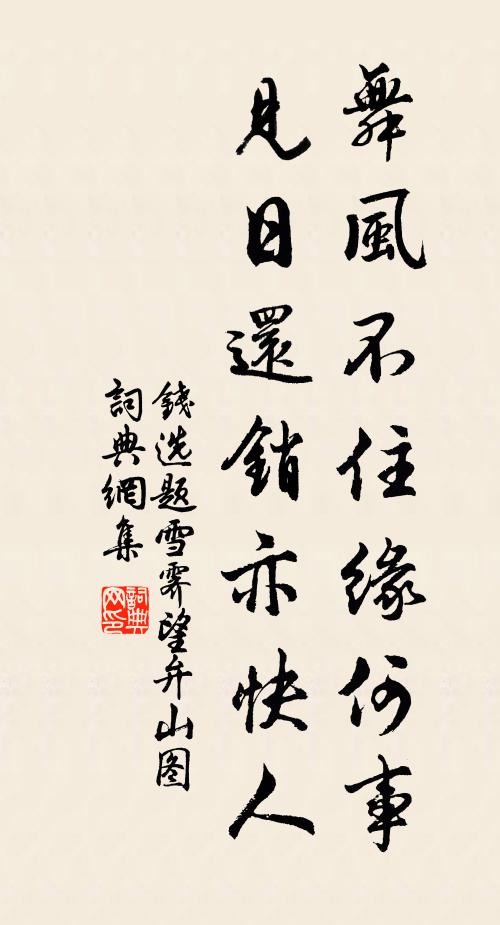 舞風不住緣何事
見日還銷亦快人
錢选題雪霽望弁山图
詞典網集
詞典网印